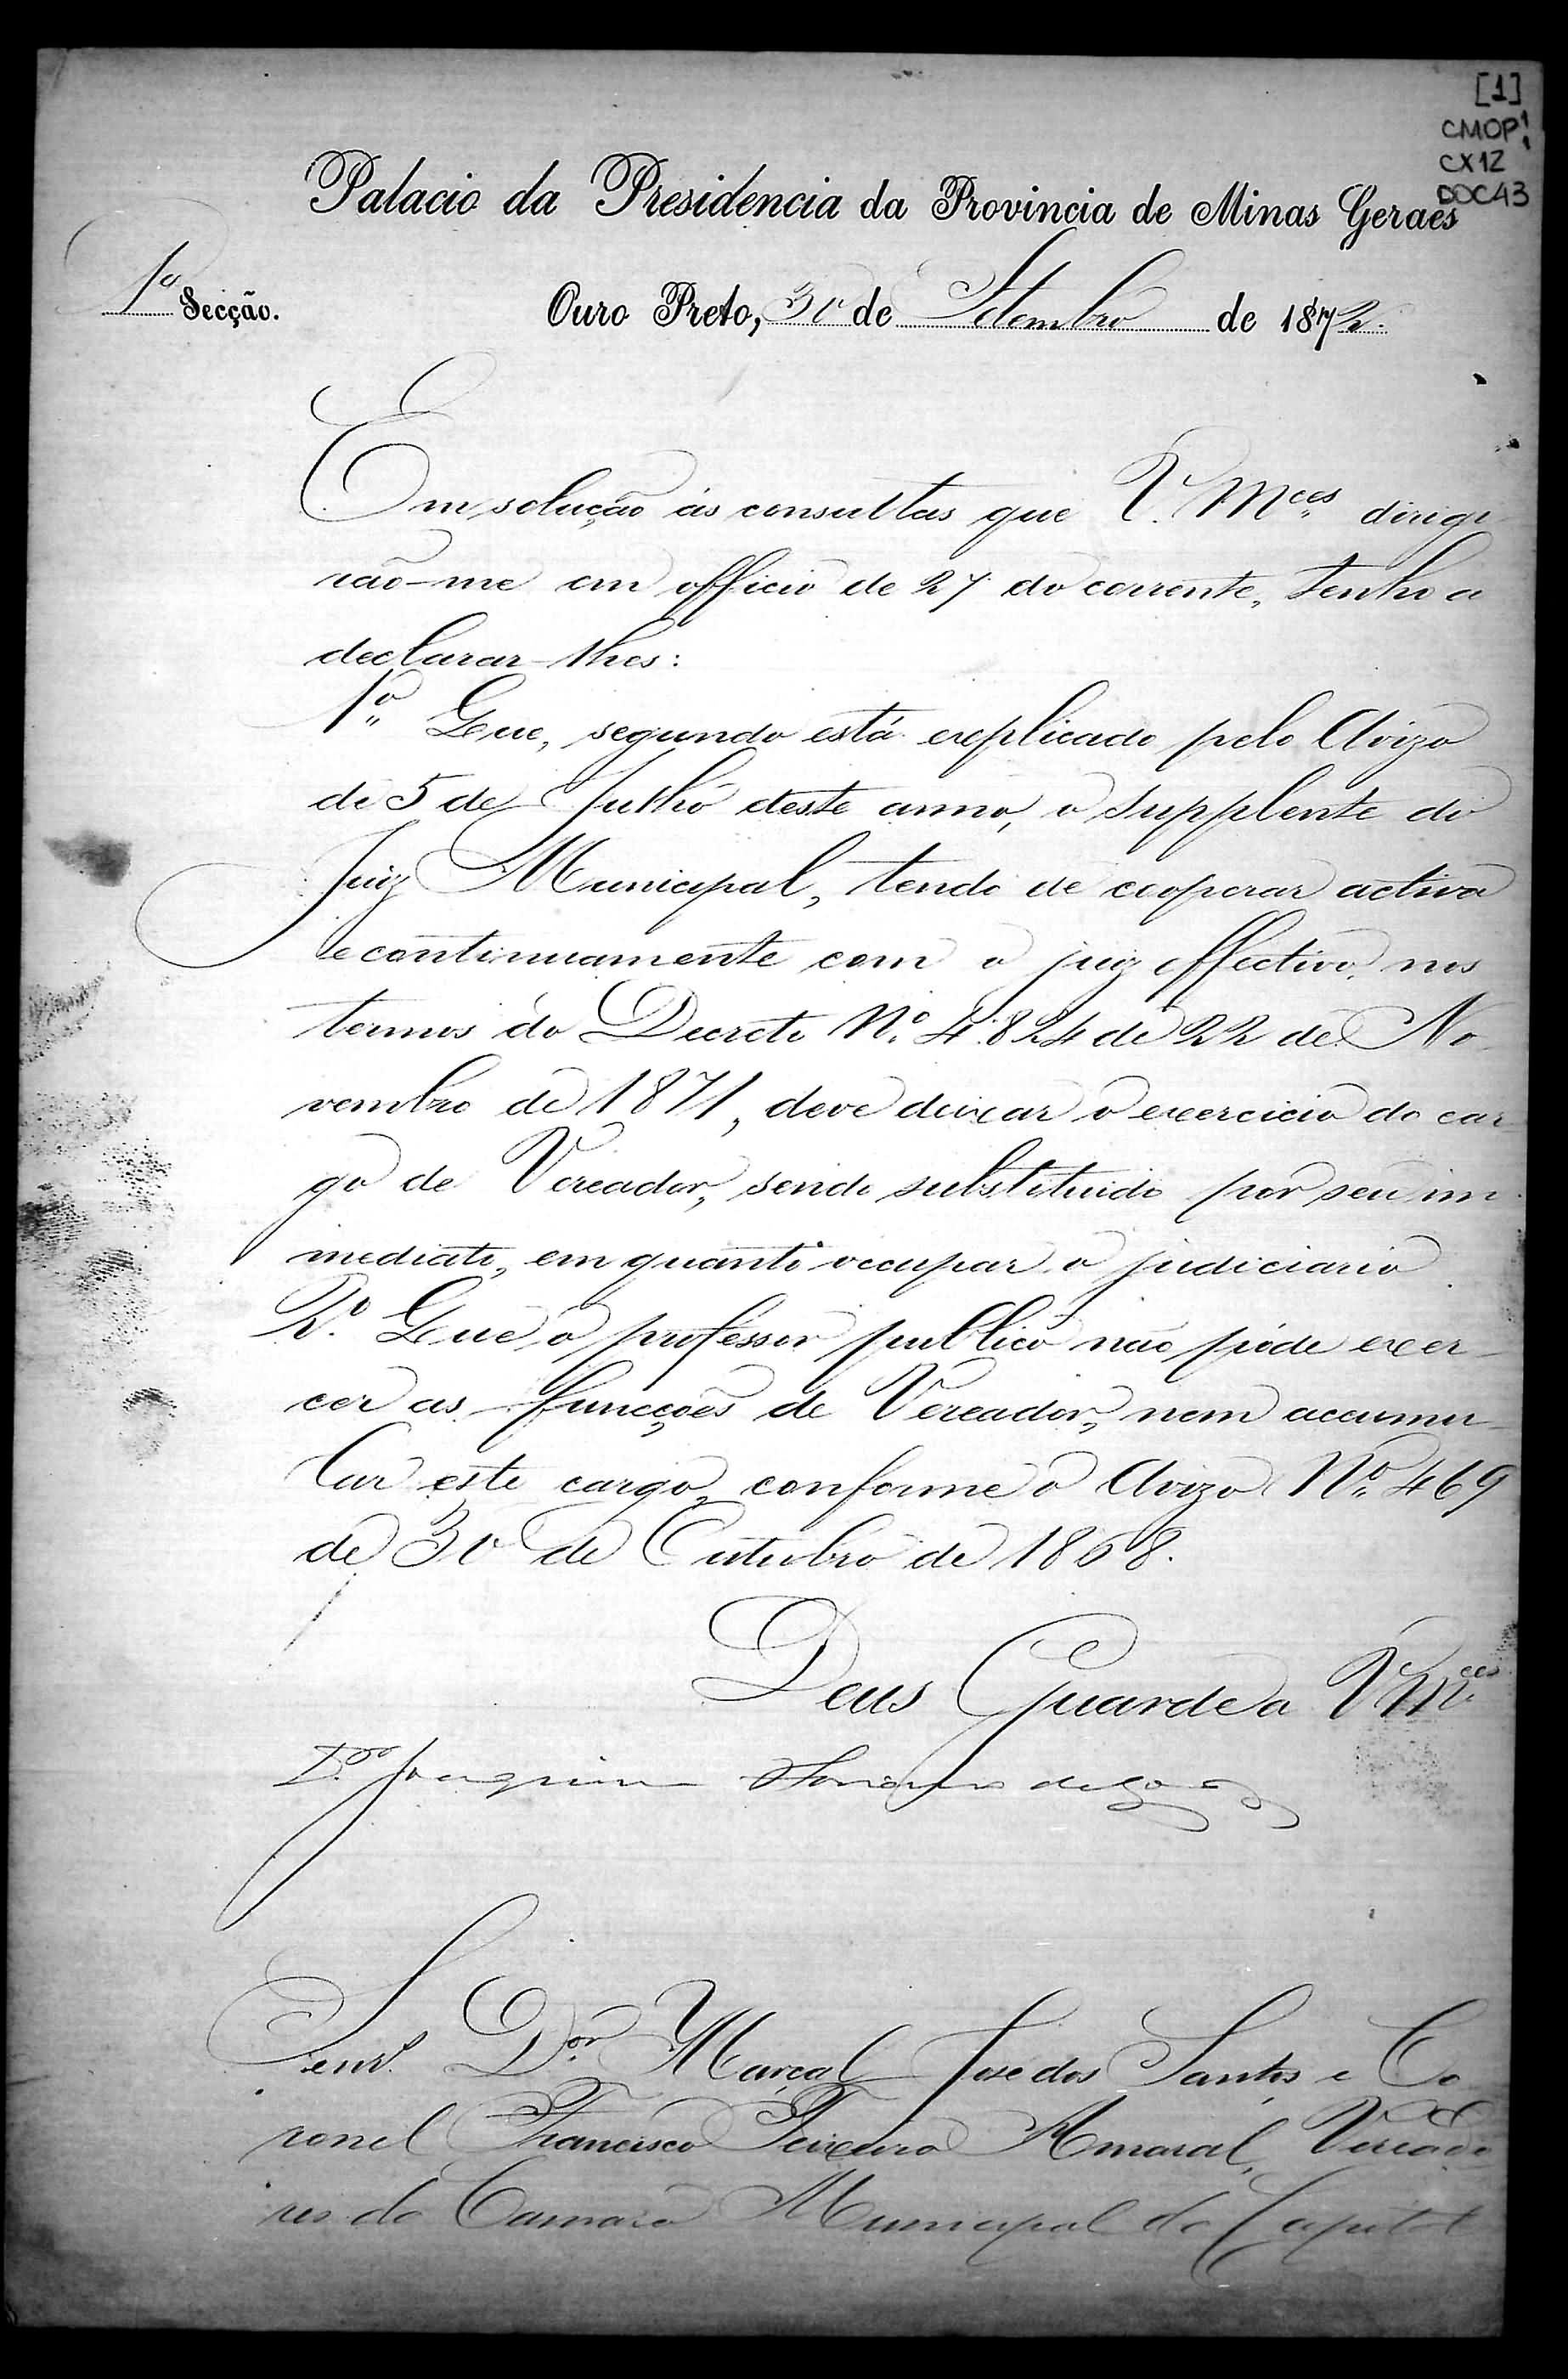 [1]
CMOP
CX12
DOC43
Palacio da Presidencia da Provincia de Minas Geraes
1ª Secção.
Ouro Preto, 30 de Setembro de 1872.
Em solução ás consultas que V. Mces dirigi
rão-me em officio de 27 do corrente, tenho a
declarar-lhes:
1º Que, segundo está explicado pelo Avizo
de 5 de Julho deste anno, o supplente do
Juiz Municipal, tendo de cooperar activa
e continuamente com o juiz effectivo, nos
termos do Decreto Nº 4.824 de 22 de No
vembro de 1871, deve deixar o exercicio do car
go de Vereador, sendo substituido por seu im
mediato, em quanto occupar o judiciario.
2º Que o professor publico não póde exer-
cer as funcções de Vereador, nem accumu-
lar este cargo, conforme o Avizo Nº 469
de 30 de Outubro de 1868.
Deus Guarde a VMces
Joaquim
Senrs Dor Marçal José dos Santos e Co
ronel Francisco Teixeira Amaral, Vereado
res da Camara Municipal da Capital